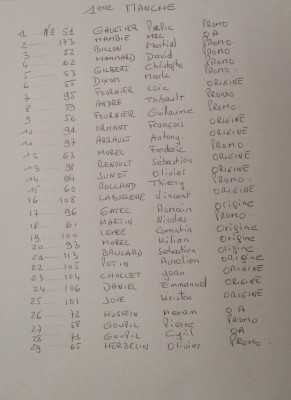 1ere MANCHE
1 N° 51 GAULTIER PROMO
2 173 MAMBIE MEL OA
3 52 BILLON Martial PROMO
4 62 HAMMARD David PROMO
5 53 GILBERT Christophe PROMO
6 55 DIXON Mark PROMO.
7 95 FOURNIER Loïc ORIGINE
8 59 ANDRE Thibault PROMO
9 56 FOURNIER Guillaume PROMO.
10 91 ORMANT François ORIGINE
11 97 ARRAULT Antony ORIGINE
12 63 MOREL Frederic PROMO.
13 98 RENOULT Sébastien ORIGINE
14 94 JUNDT Olivier ORIGINE
15 60 ROLLAND Thierry PROMO.
16 108 Vincent ORIGINE
17 96 GATEC Romain Origine
18 61 MARTIN Nicolas PROMO.
19 100 Corentin Origine
20 93 MOREL Kilian Origine
21 113 BRULARD Sébastien Origine
22 105 POTIN Aurelien ORIGINE
23 104 CHOLLET Yoan ORIGINE
24 106 DANIEL Emmanuel ORIGINE
25 101 JOIE Kristen ORIGINE
26 72 HUSSEIN OA
27 58 GOUPIL Pierre PROMO
28 71 GOUPIL Cyril OA
29 65 HERBELIN Olivier PROMO.